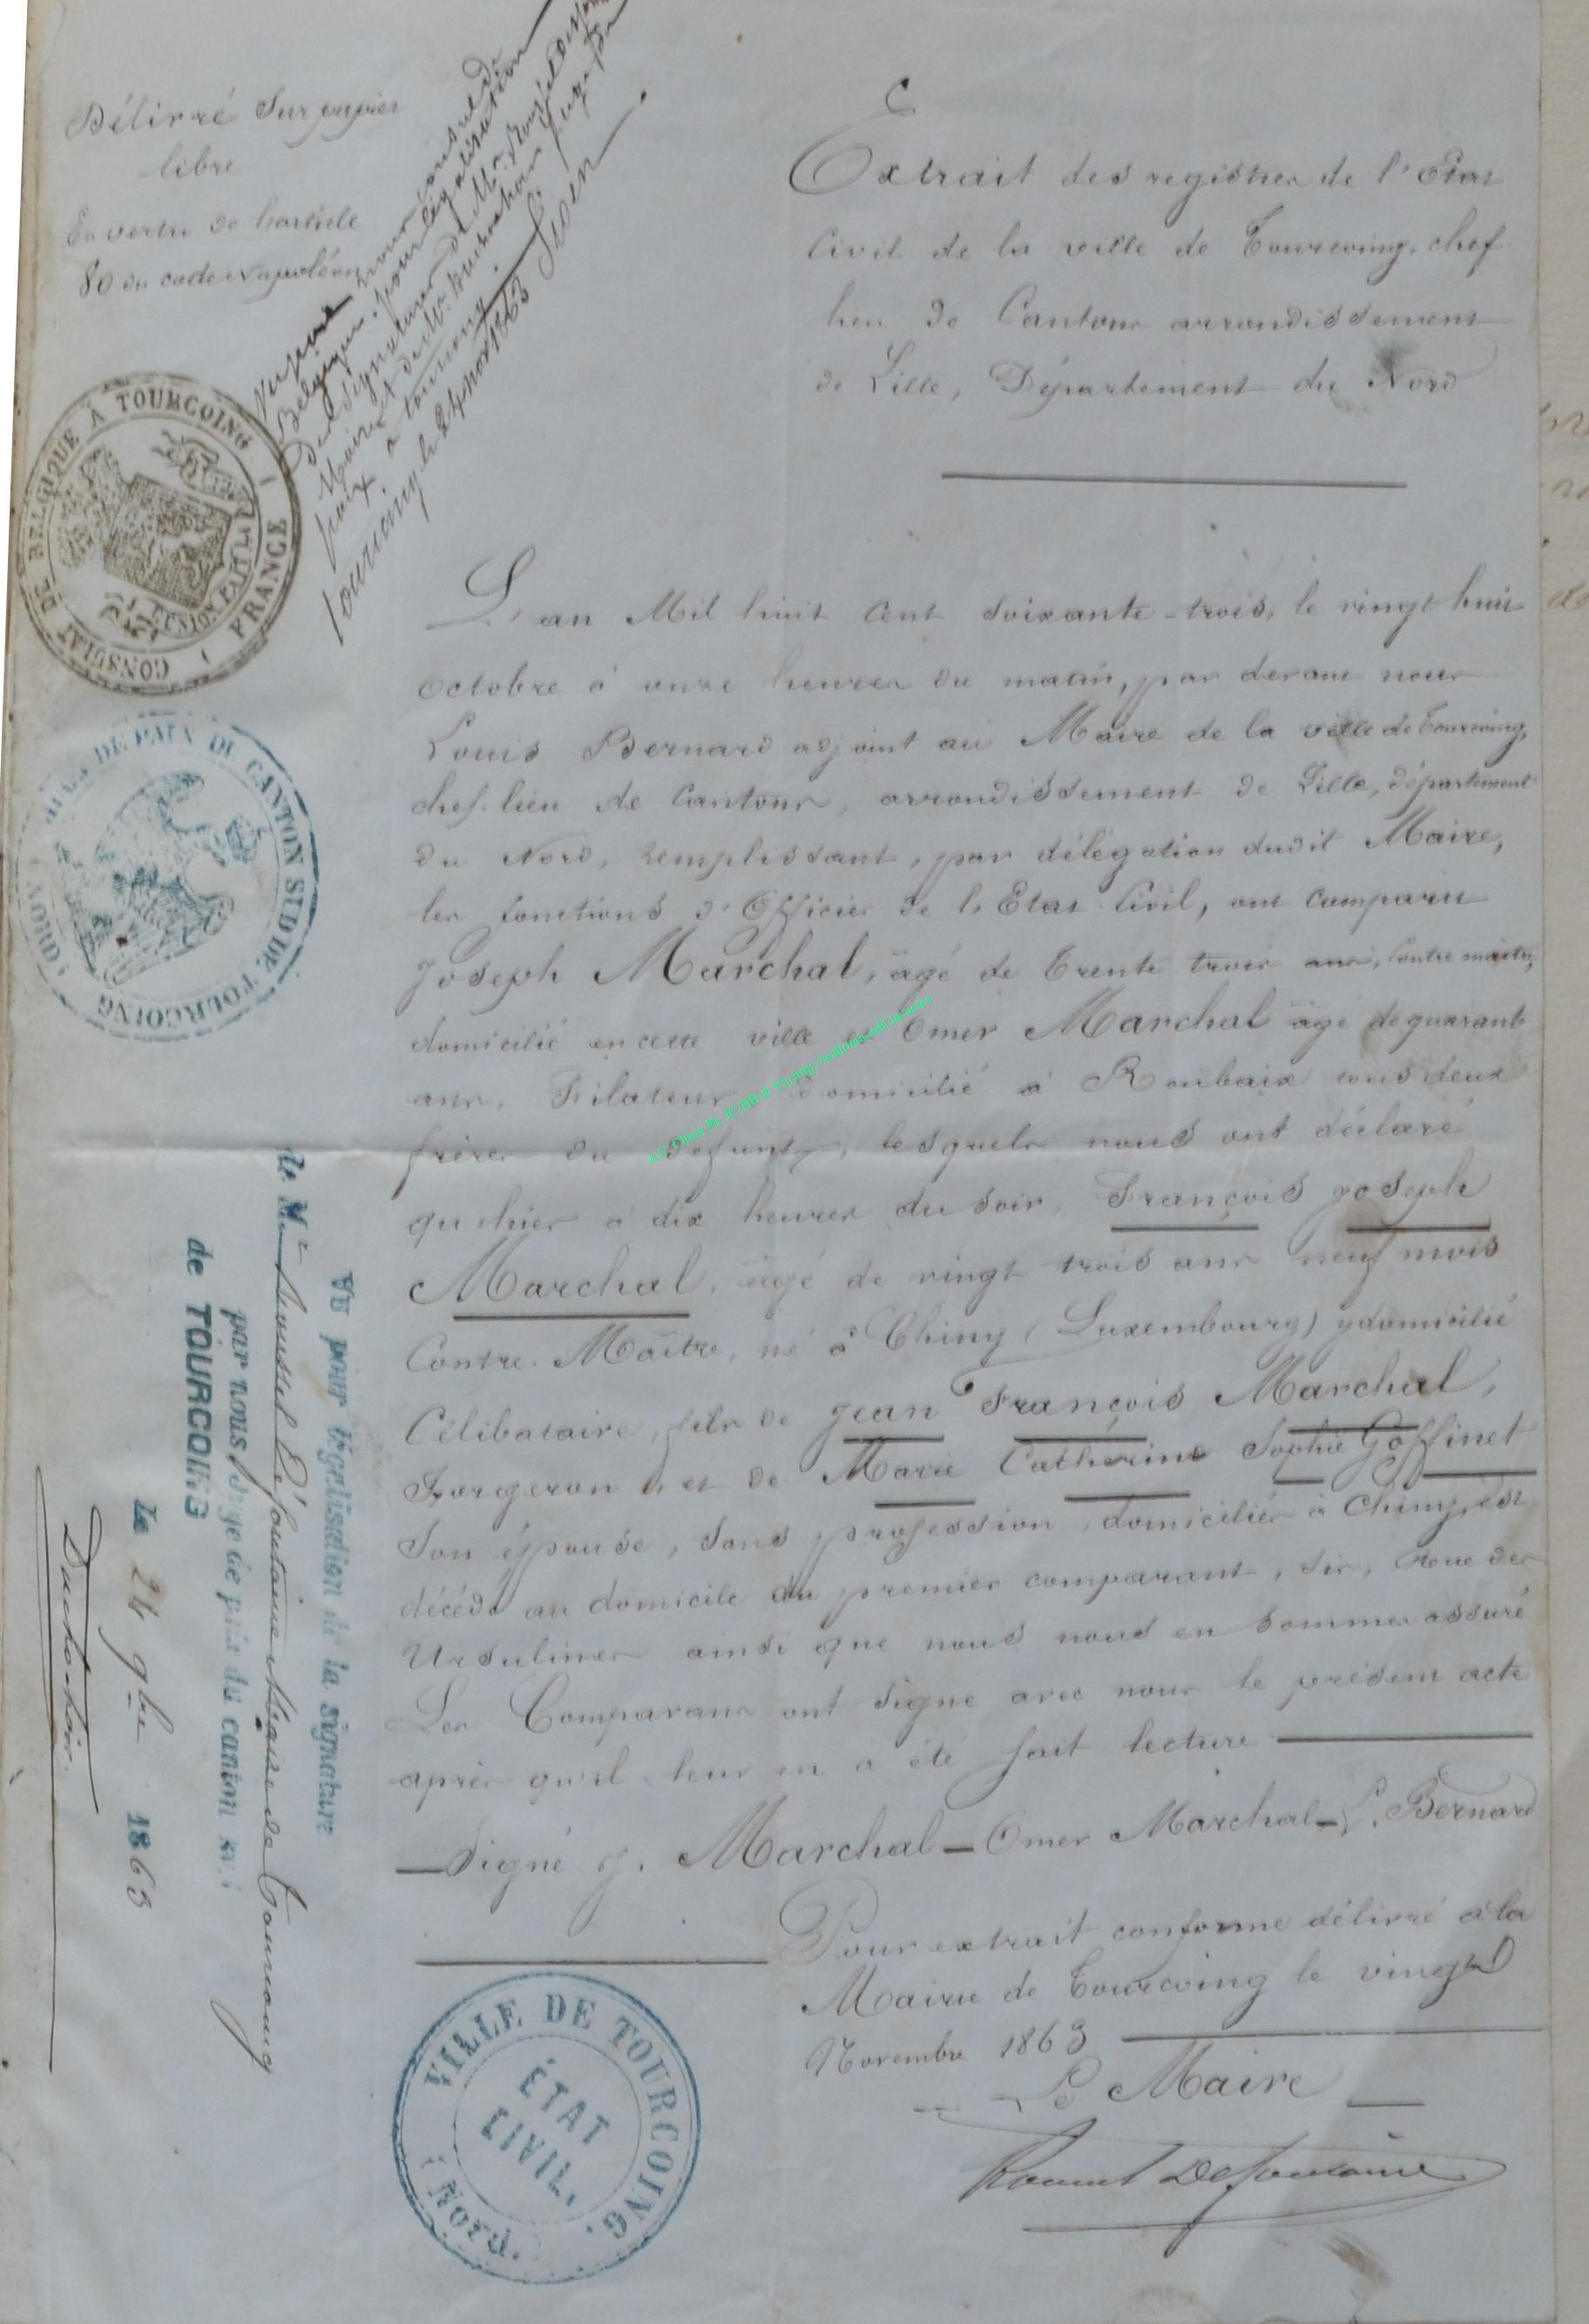 Délivré Sur papier
libre
En vertu de l'article
80 du code Napoléon
Vu par nous consul de
Belgique, pour légalisation
des signatures de Mr. Roussel Defontaine
Maire et de Mr. Duchochois juge de
paix à Tourcoing.
Tourcoing le 24 9bre 1863
CONSULAT DE BELGIQUE À TOURCOING
FRANCE
L'UNION FAIT LA FORCE
JUGE DE PAIX DU CANTON SUD DE TOURCOING
(NORD)
Extrait des registres de l'Etat
Civil de la ville de Tourcoing, chef
lieu de Canton arrondissement
de Lille, Département du Nord
L'an Mil huit Cent soixante-trois, le vingt huit
Octobre à onze heures du matin, par devant nous
Louis Bernard adjoint au Maire de la ville de Tourcoing,
chef-lieu de Canton, arrondissement de Lille, département
du Nord, remplissant, par délégation dudit Maire,
les fonctions d'Officier de l'Etat Civil, ont comparu
Joseph Marchal, âgé de Trente trois ans, Contre maitre,
domicilié en cette ville et Omer Marchal âgé de quarante
ans, Filateur domicilié à Roubaix tous deux
frères du défunt, lesquels nous ont déclaré
qu'hier à dix heures du soir, François Joseph
Marchal, âgé de vingt trois ans neuf mois
Contre-Maître, né à Chiny (Luxembourg) y domicilié
Célibataire, fils de Jean François Marchal,
Forgeron, et de Marie Catherine Sophie Goffinet
Son épouse, sans profession, domiciliés à Chiny, est
décédé au domicile du premier comparant, sis, Rue des
Ursulines ainsi que nous nous en sommes assuré
Les Comparans ont signé avec nous le présent acte
après qu'il leur en a été fait lecture
Signé J. Marchal - Omer Marchal - L. Bernard
Pour extrait conforme délivré à la
Mairie de Tourcoing le vingt
Novembre 1863
Le Maire
Roussel Defontaine
VILLE DE TOURCOING.
ÉTAT
CIVIL.
(Nord)
Vu pour légalisation de la signature
de Mr Roussel Defontaine Maire de Tourcoing
par nous juge de paix du canton sud
de TOURCOING
Le 24 9bre 1863